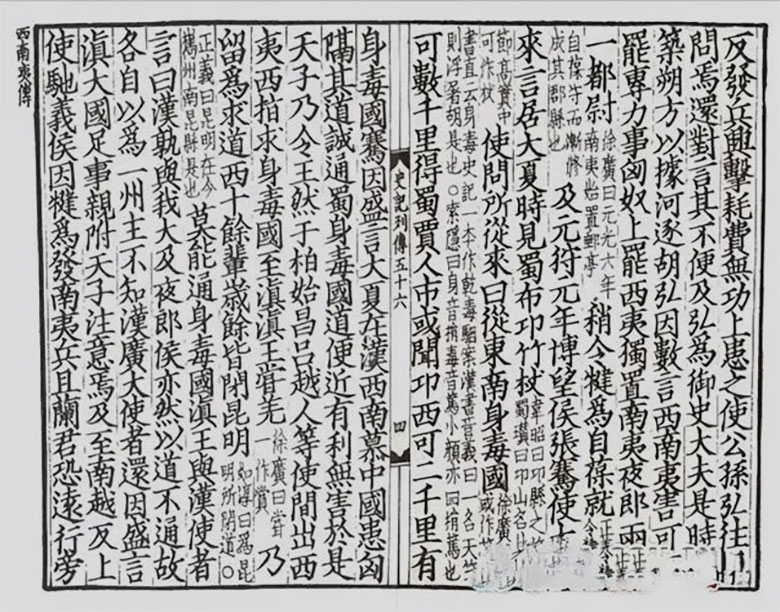 反發兵興擊耗費無功上患之使公孫弘往
問焉還對言其不便及弘爲御史大夫是時
築朔方以據河逐胡弘因數言西南夷害可
罷專力事匈奴上罷西夷獨置南夷夜郎兩
一都尉徐廣曰元光六年南夷始置郵亭稍令犍爲自葆就
自葆守而漸修成其郡縣也及元狩元年博望侯張騫使
來言居大夏時見蜀布卭竹杖韋昭曰卭縣之竹瓚曰卭山名
節高實中可作杖使問所從來曰從東南身毒國徐廣
書直云身毒史記一本作乾毒駰案漢書音義曰一名天竺則浮屠胡是也○索隱曰身音捐毒音篤小顏亦曰捐篤也
可數千里得蜀賈人市或聞卭西可二千里有
史記列傳五十六 四
身毒國騫因盛言大夏在漢西南慕中國患匈
隔其道誠通蜀身毒國道便近有利無害於是
天子乃令王然于柏始昌呂越人等使間出西
夷西指求身毒國至滇滇王甞羌徐廣曰甞一作賞乃
留爲求道西十餘輩歲餘皆閉昆明如淳曰爲昆明所閉道○
正義曰昆明在今嶲州南昆縣是也莫能通身毒國滇王與漢使者
言曰漢孰與我大及夜郎侯亦然以道不通故
各自以爲一州主不知漢廣大使者還因盛言
滇大國足事親附天子注意焉及至南越反上
使馳義侯因犍爲發南夷兵且蘭君恐遠行旁
西南夷傳